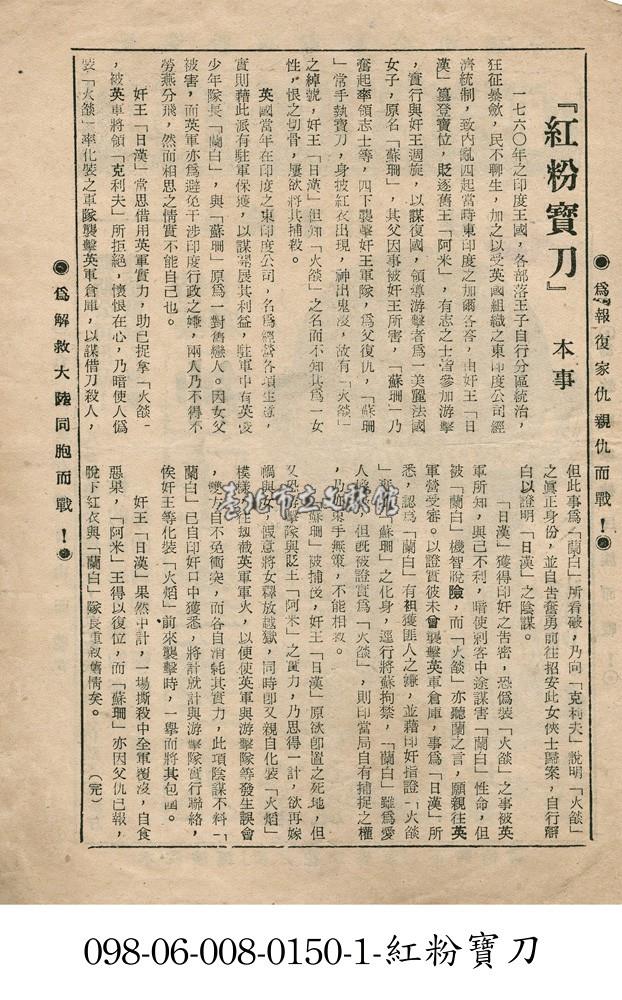 ●為報復家仇親仇而戰！●
『紅粉寶刀』 本事
一七六〇年之印度王國，各部落王子自行分區統治，
狂征暴斂，民不聊生，加之以受英國組織之東印度公司經
濟統制，致內亂四起當時東印度之加爾各答，由奸王「日
漢」篡登寶位，貶逐舊王「阿米」，有志之士皆參加游擊
，實行與奸王週旋，以謀復國，領導游擊者為一美麗法國
女子，原名「蘇珊」，其父因事被奸王所害，「蘇珊」乃
奮起率領志士等，四下襲擊奸王軍隊，為父復仇，「蘇珊
」常手執寶刀，身披紅衣出現，神出鬼沒，故有「火燄」
之綽號，奸王「日漢」但知「火燄」之名而不知其為一女
性，恨之切骨，屢欲將其捕殺。
英國當年在印度之東印度公司，名為經營各項生意，
實則藉此派有駐軍保護，以謀發展其利益，駐軍中有英俊
少年隊長「蘭白」，與「蘇珊」原為一對舊戀人。因女父
被害，而英軍亦為避免干涉印度行政之嫌，兩人乃不得不
勞燕分飛，然而相思之情實不能自已也。
奸王「日漢」常思借用英軍實力，助已捉拿「火燄」
，被英軍將領「克利夫」所拒絕，懷恨在心，乃暗使人偽
裝「火燄」率化裝之軍隊襲擊英軍倉庫，以謀借刀殺人，
但此事為「蘭白」所看破，乃向「克利夫」說明「火燄」
之眞正身份，並自告奮勇前往招安此女俠士歸案，自行解
白以證明「日漢」之陰謀。
「日漢」獲得印奸之告密，恐偽裝「火燄」之事被英
軍所知，與己不利，暗使刺客中途謀害「蘭白」性命，但
被「蘭白」機智脫險，而「火燄」亦聽蘭之言，願親往英
軍營受審。以證實彼未曾襲擊英軍倉庫，事為「日漢」所
悉，認為「蘭白」有袒護匪人之嫌，並藉印奸指證「火燄
」為「蘇珊」之化身，逕行將蘇拘禁，「蘭白」雖為愛
人　　，但既被證實為「火燄」，則印當局自有捕捉之權
，乃　束手無策，不能相救。
「蘇珊」被捕後，奸王「日漢」原欲卽置之死地，但
又恐游擊隊與貶王「阿米」之實力，乃思得一計，欲再嫁
禍與女，假意將女釋放越獄，同時卽又親自化裝「火熖」
模樣，往刧截英軍軍火，以便使英軍與游擊隊等發生誤會
，雙方自不免衝突，而各自消耗其實力，此項陰謀不料「
蘭白」已自印奸口中獲悉，將計就計與游擊隊實行聯絡，
俟奸王等化裝「火熖」前來襲擊時，一舉而將其包圍。
奸王「日漢」果然中計，一場撕殺中全軍覆沒，自食
惡果，「阿米」王得以復位，而「蘇珊」亦因父仇已報，
脫下紅衣與「蘭白」隊長重敘舊情矣。　（完）
●為解救大陸同胞而戰！●
臺北市立文獻館
098-06-008-0150-1-紅粉寶刀